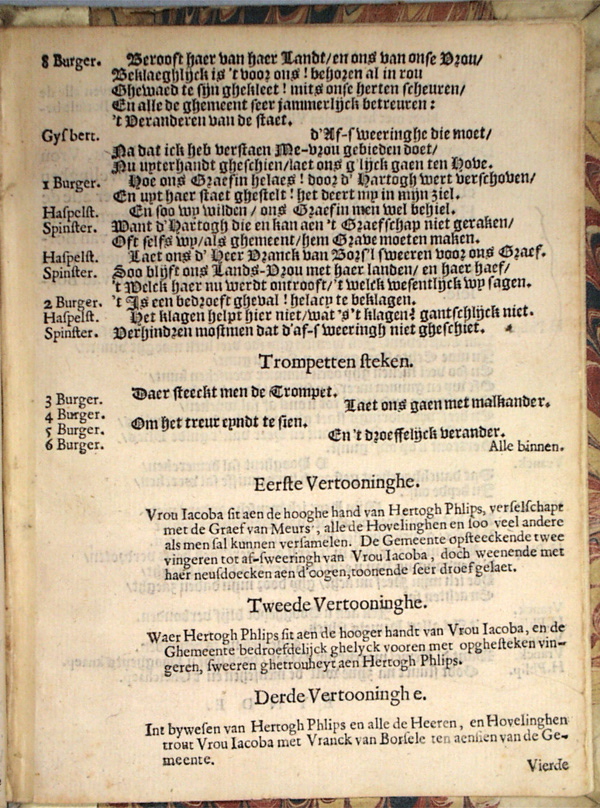 8 Burger. Beroost haer van haer Landt/en ons van onse Vrou/
Beklaeghlijck is 't voor ons! behoren al in rou
Ghewaed te sijn ghekleet! mits onse herten scheuren/
En alle de ghemeent seer jammerlijck betreuren:
't Veranderen van de staet.
Gysbert. d'Af-sweeringhe die moet/
Na dat ick heb verstaen Me-vrou gebieden doet/
Nu uyterhandt gheschien/laet ons g'lijck gaen ten Hove.
1 Burger. Hoe ons Graefin helaes! door d'Hartogh wert verschoven/
En uyt haer staet ghestelt! het deert my in mijn ziel.
Haspelst. En soo wy wilden/ons Graefin men wel behiel.
Spinster. Want d'Hartogh die en kan aen't Graefschap niet geraken/
Oft selfs wy/als ghemeent/hem Grave moeten maken.
Haspelst. Laet ons d'Heer Vranck van Bors'l sweeren voor ons Graef.
Spinster. Soo blijft ons Lands-Vrou met haer landen/en haer haef/
't Welck haer nu werdt ontrooft/'t welk wesentlijck wy sagen.
2 Burger. 't Is een bedroeft gheval! helacy te beklagen.
Haspelst. Het klagen helpt hier niet/wat 's't klagen? gantschlijck niet.
Spinster. Verhindren mostmen dat d'af-sweeringh niet gheschiet.
Trompetten steken.
3 Burger. Daer steeckt men de Trompet.
4 Burger. Laet ons gaen met malkander.
5 Burger. Om het treur eyndt te sien.
6 Burger. En't droeffelijck verander.
Alle binnen.
Eerste Vertooninghe.
Vrou Iacoba sit aen de hooghe hand van Hertogh Phlips, verselschapt
met de Graef van Meurs, alle de Hovelinghen en soo veel andere
als men sal kunnen versamelen. De Gemeente opsteeckende twee
vingeren tot af-sweeringh van Vrou Iacoba, doch weenende met
haer neusdoecken aen d'oogen, toonende seer droef gelaet.
Tweede Vertooninghe.
Waer Hertogh Phlips sit aen de hooger handt van Vrou Iacoba, en de
Ghemeente bedroefdelijck ghelyck vooren met opghesteken vin-
geren, sweeren ghetrouheyt aen Hertogh Phlips.
Derde Vertooninghe.
Int bywesen van Hertogh Phlips en alle de Heeren, en Hovelinghen
trout Vrou Iacoba met Vranck van Borsele ten aensien van de Ge-
meente.
Vierde